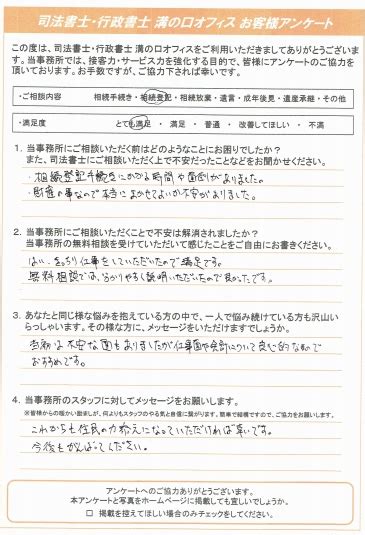 司法書士・行政書士 溝の口オフィス お客様アンケート
この度は、司法書士・行政書士 溝の口オフィスをご利用いただきましてありがとうございま
す。当事務所では、接客力・サービス力を強化する目的で、皆様にアンケートのご協力を
頂いております。お手数ですが、ご協力下されば幸いです。
・ご相談内容 相続手続き・相続登記・相続放棄・遺言・成年後見・遺産承継・その他
・満足度 とても満足 ・ 満足 ・ 普通 ・ 改善してほしい ・ 不満
1. 当事務所にご相談いただく前はどのようなことにお困りでしたか？
また、司法書士にご相談いただく上で不安だったことなどをお聞かせください。
・相続登記手続きにかかる時間や面倒がありました。
・財産の事なので本当にまかせてよいか不安がありました。
2. 当事務所にご相談いただくことで不安は解消されましたか？
当事務所の無料相談を受けていただいて感じたことをご自由にお書きください。
はい、きっちり仕事をしていただいたので満足です。
無料相談では、分かりやすく説明いただいたので良かったです。
3. あなたと同じ様な悩みを抱えている方の中で、一人で悩み続けている方も沢山い
らっしゃいます。その様な方に、メッセージをいただけますでしょうか。
当初は不安な面もありましたが仕事面や会計について良心的なので
おすすめです。
4. 当事務所のスタッフに対してメッセージをお願いします。
※皆様からの暖かい励ましが、何よりもスタッフのやる気と自信に繋がります。簡単で結構ですので、ご協力をお願いします。
これからも住民の力添えになっていただければ幸いです。
今後もがんばってください。
アンケートへのご協力ありがとうございます。
本アンケートと写真をホームページに掲載しても宜しいでしょうか。
□ 掲載を控えてほしい場合のみチェックをしてください。